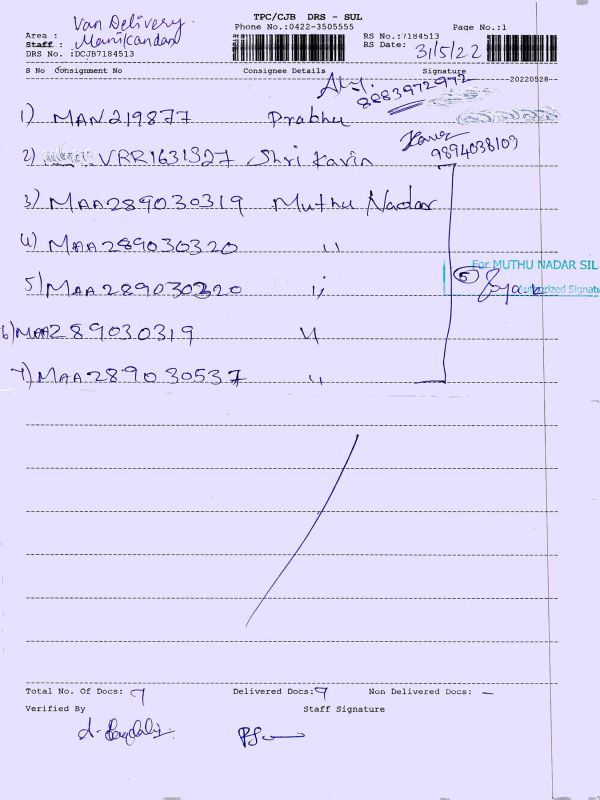 TPC/CJB DRS - SUL
Van Delivery
Phone No.:0422-3505555
Page No.:1
Area :
Staff : Manikandan
RS No.:7184513
DRS No. :DCJB7184513
RS Date: 31/5/22
S No Consignment No Consignee Details Signature
20220528
8883972972
1) MAN219877 Prabhu
9894038109
2) VRR1631327 Shri Kavin
3) MAA289030319 Muthu Nadar
4) MAA289030320 "
For MUTHU NADAR SIL
5) MAA289030320 "
5
Authorized Signat
6) MAA289030319 "
7) MAA289030537 "
Total No. Of Docs: 7 Delivered Docs: 7 Non Delivered Docs: -
Verified By Staff Signature